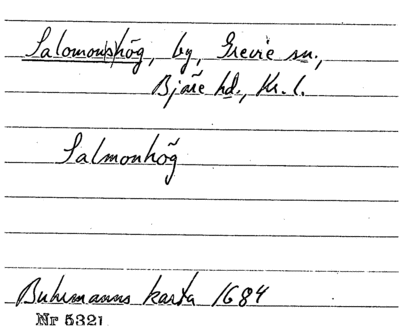 Salomon(s)hög, by, Grevie sn.,
Bjäre hd., Kr. l.
Salmonhög
Buhrmanns karta 1684
Nr 5321